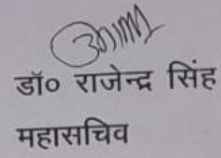 डॉ० राजेन्द्र सिंह
महासचिव